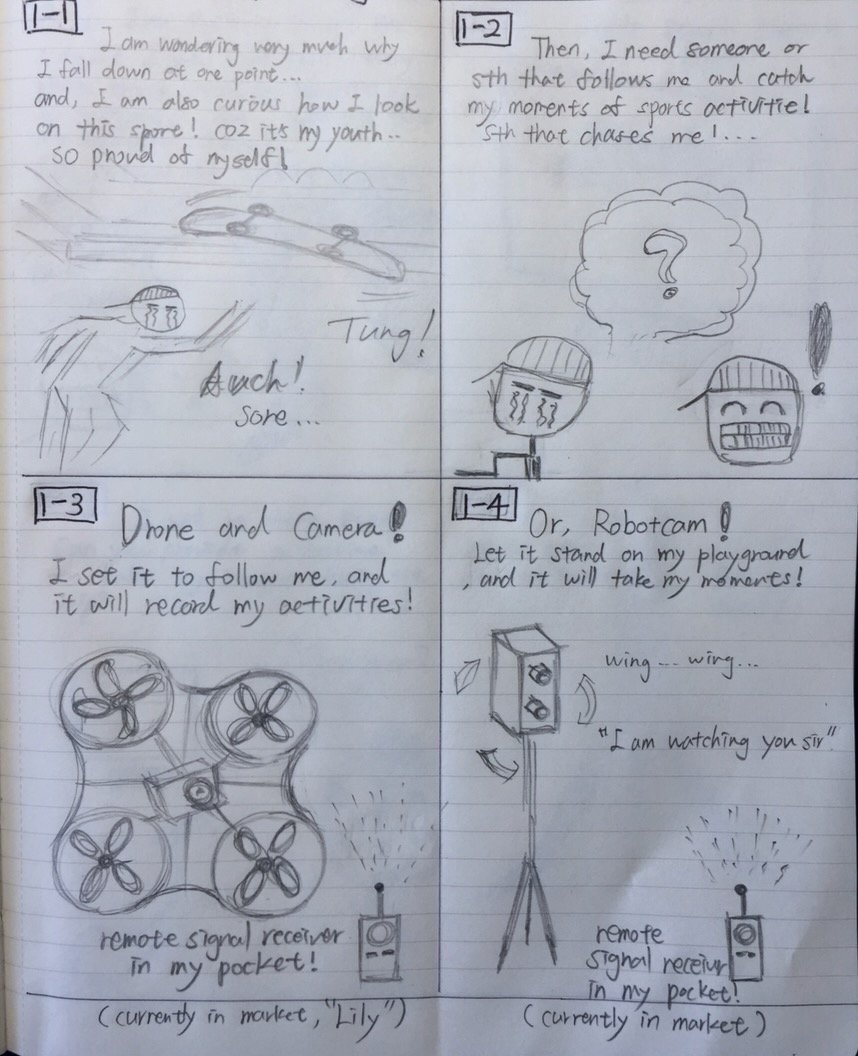 1-1
I am wondering very much why
I fall down at one point...
and, I am also curious how I look
on this spore! coz it's my youth..
so proud of myself!
Tung!
Auch!
Sore...
1-2
Then, I need someone or
sth that follows me and catch
my moments of sports activitie!
sth that chases me!...
?
!
1-3
Drone and Camera!
I set it to follow me, and
it will record my activities!
remote signal receiver
in my pocket!
(currently in market, "Lily")
1-4
Or, Robotcam!
Let it stand on my playground
, and it will take my moments!
wing... wing...
"I am watching you sir"
remote
signal receiver
in my pocket!
(currently in market)